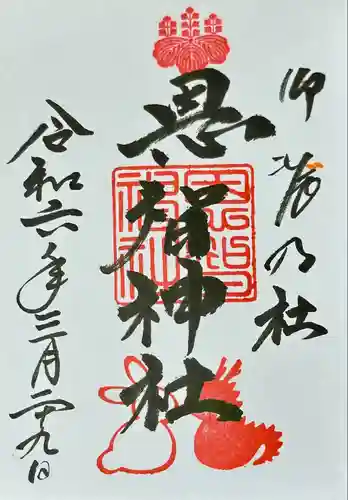 卯辰乃社
恩智神社
恩智
神社
令和六年三月二十九日